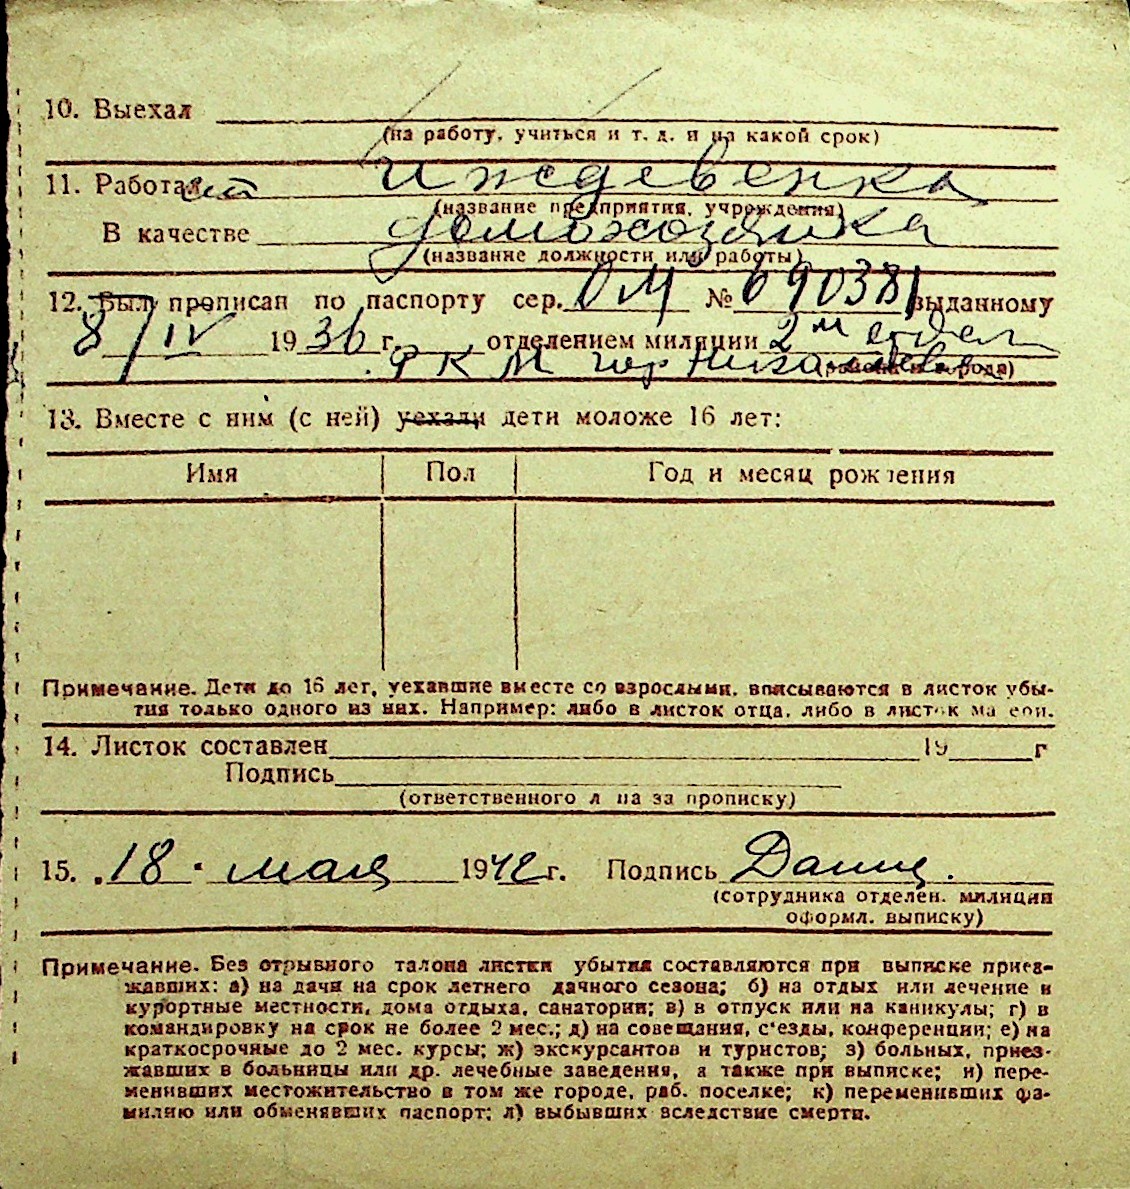 10. Выехал
(на работу, учиться и т. д. и на какой срок)
11. Работает Иждевенка
(название предприятия, учреждения)
В качестве домохозяйка
(название должности или работы)
12. Был прописан по паспорту сер. ОМ № 690381 выданному
8/IV 1936 г. отделением милиции 2м отдел
РКМ гор
13. Вместе с ним (с ней) уехали дети моложе 16 лет:
Имя Пол Год и месяц рождения
Примечание. Дети до 16 лет, уехавшие вместе со взрослыми, вписываются в листок убы-
тия только одного из них. Например: либо в листок отца, либо в листок матери.
14. Листок составлен 19 г
Подпись
(ответственного лица за прописку)
15. 18 · мая 1942 г. Подпись
(сотрудника отделен. милиции
оформл. выписку)
Примечание. Без отрывного талона листки убытия составляются при выписке приез-
жавших: а) на дачи на срок летнего дачного сезона; б) на отдых или лечение в
курортные местности, дома отдыха, санатории; в) в отпуск или на каникулы; г) в
командировку на срок не более 2 мес.; д) на совещания, с'езды, конференции; е) на
краткосрочные до 2 мес. курсы; ж) экскурсантов и туристов; з) больных, приез-
жавших в больницы или др. лечебные заведения, а также при выписке; и) пере-
менивших местожительство в том же городе, раб. поселке; к) переменивших фа-
милию или обменявших паспорт; л) выбывших вследствие смерти.